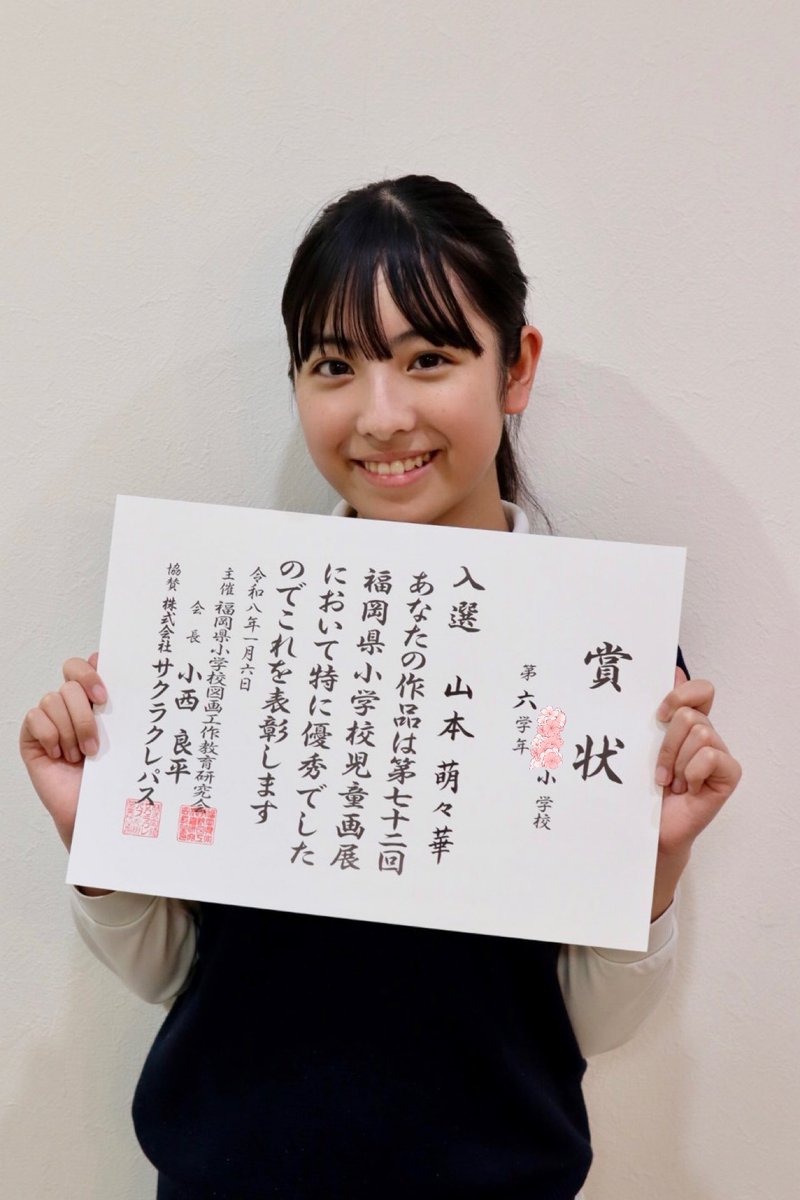 賞状
小学校
第六学年
入選 山本 萌々華
あなたの作品は第七十二回
福岡県小学校児童画展
において特に優秀でした
のでこれを表彰します
令和八年一月六日
主催 福岡県小学校図画工作教育研究会
会長 小西 良平
協賛 株式会社サクラクレパス